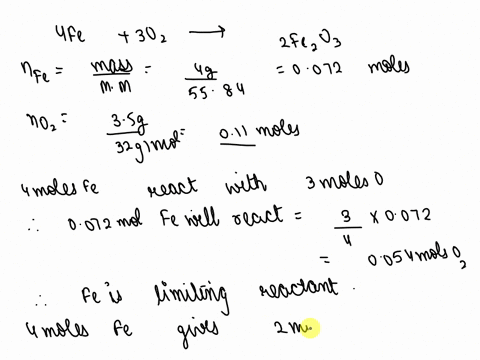 4Fe + 3O₂ ⟶ 2Fe₂O₃
nFe = mass/m.m = 4g/55.84 = 0.072 moles
nO₂ = 3.5g/32g/mol = 0.11 moles
4 moles Fe react with 3 moles O
∴ 0.072 mol Fe will react = 3/4 × 0.072
= 0.054 mols O₂
∴ Fe is limiting reactant.
4 moles Fe gives 2 m